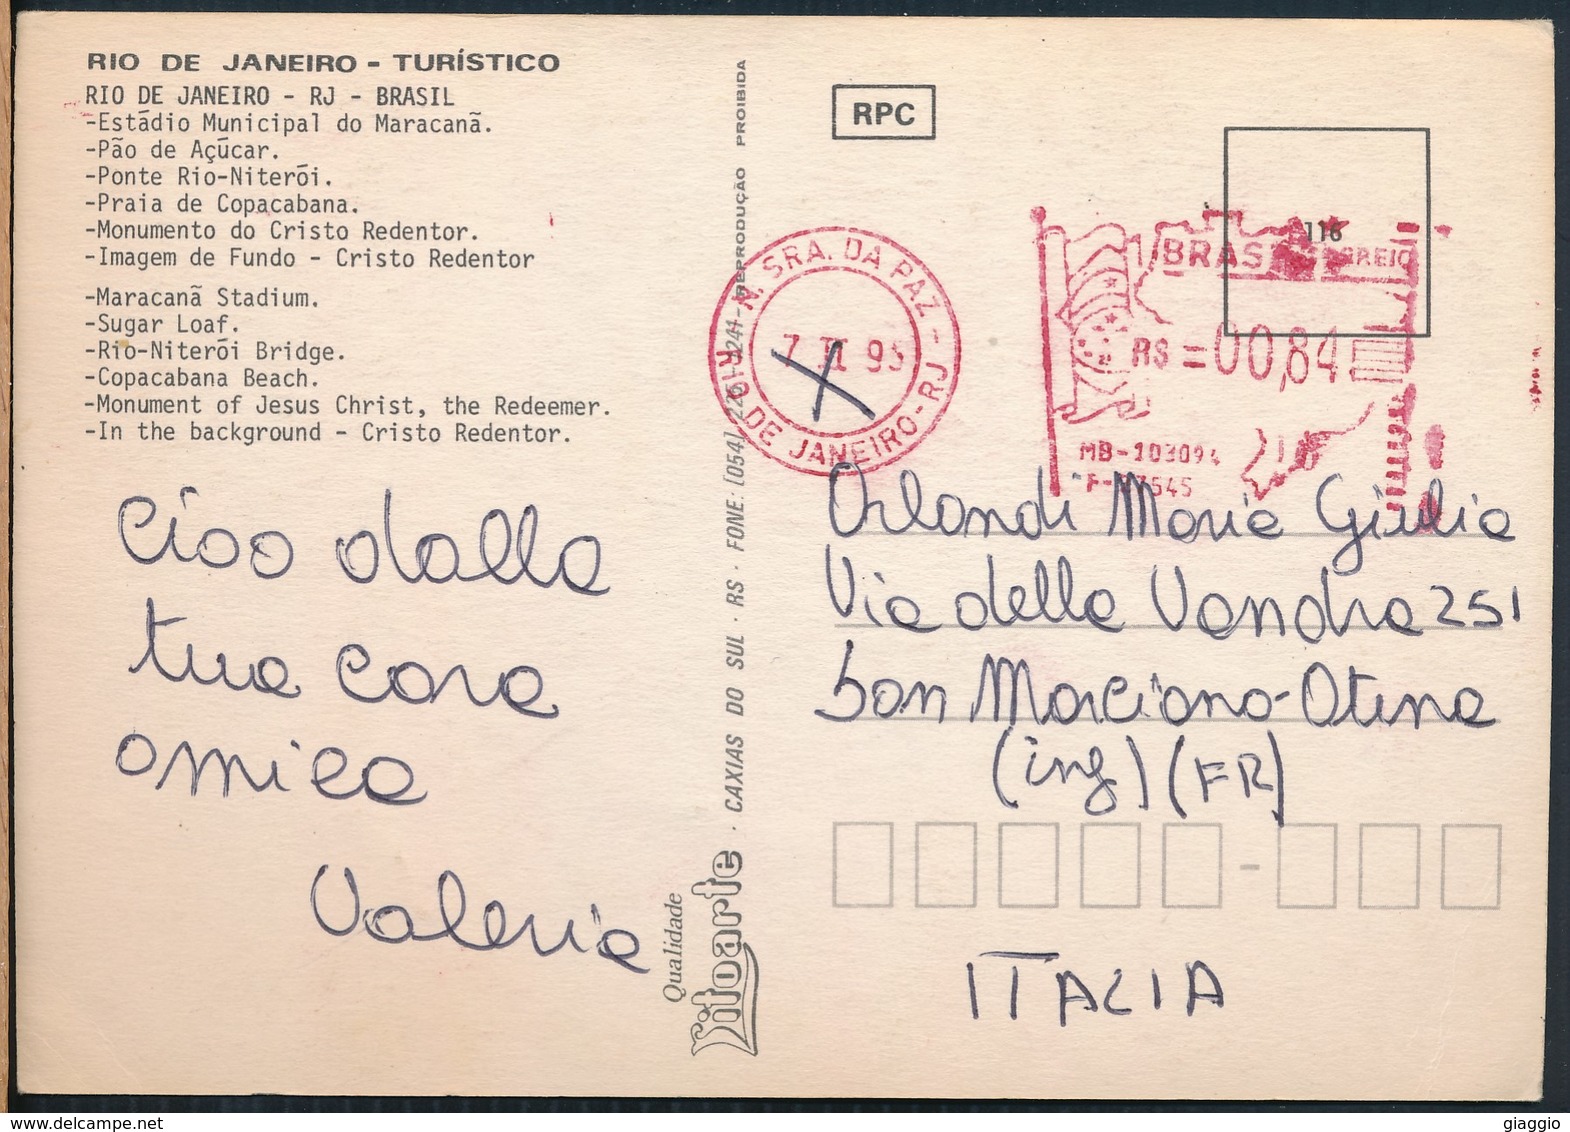 RIO DE JANEIRO - TURÍSTICO
RIO DE JANEIRO - RJ - BRASIL
-Estádio Municipal do Maracanã.
-Pão de Açúcar.
-Ponte Rio-Niterói.
-Praia de Copacabana.
-Monumento do Cristo Redentor.
-Imagem de Fundo - Cristo Redentor
-Maracanã Stadium.
-Sugar Loaf.
-Rio-Niterói Bridge.
-Copacabana Beach.
-Monument of Jesus Christ, the Redeemer.
-In the background - Cristo Redentor.
Ciao dalla
tua cara
amica
Valeria
REPRODUÇÃO PROIBIDA
CAXIAS DO SUL · RS · FONE: (054)
Qualidade
Litoarte
RPC
116
N. SRA. DA PAZ - RJ
7 II 95
RIO DE JANEIRO - RJ
BRASIL CORREIO
R$ = 00,84
MB-103094
Orlandi Maria Giulia
Via della Vandra 251
San Marciano-Otina
(ing) (FR)
ITALIA
giaggio